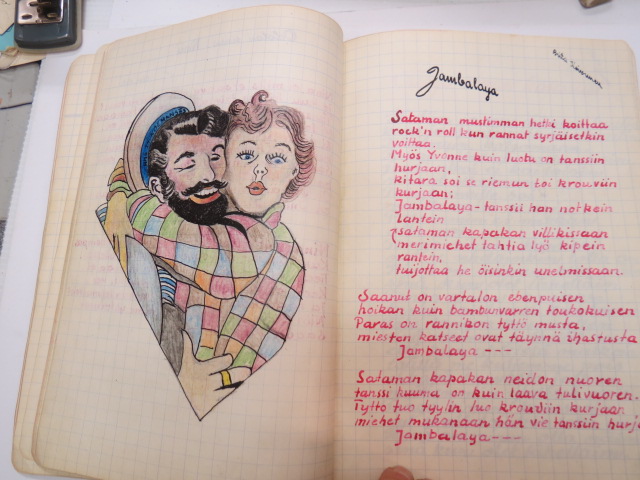 Jambalaya
Sataman mustimman hetki koittaa
rock'n roll kun rannat syrjäisetkin
voittaa,
Myös Yvonne kuin luotu on tanssiin
hurjaan,
kitara soi se riemun toi krouviin
kurjaan;
Jambalaya-tanssii hän notkein
lantein
sataman kapakan villikissaan
merimiehet tahtia lyö kipein
rantein,
tuijottaa he öisinkin unelmissaan.
Saanut on vartalon ebenpuisen
hoikan kuin bambunvarren toukokuisen
Paras on rannikon tyttö musta,
miesten katseet ovat täynnä ihastusta
Jambalaya ---
Sataman kapakan neidon nuoren
tanssi kuuma on kuin laava tulivuoren.
Tyttö tuo tyylin luo krouviin kurjaan
miehet mukanaan hän vie tanssiin hurj
Jambalaya---